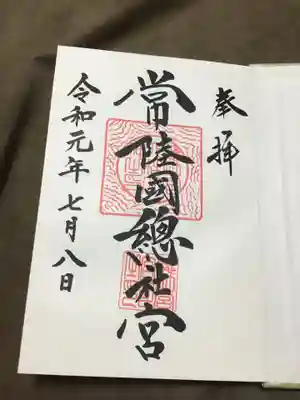 奉拝
常陸國總社宮
令和元年七月八日